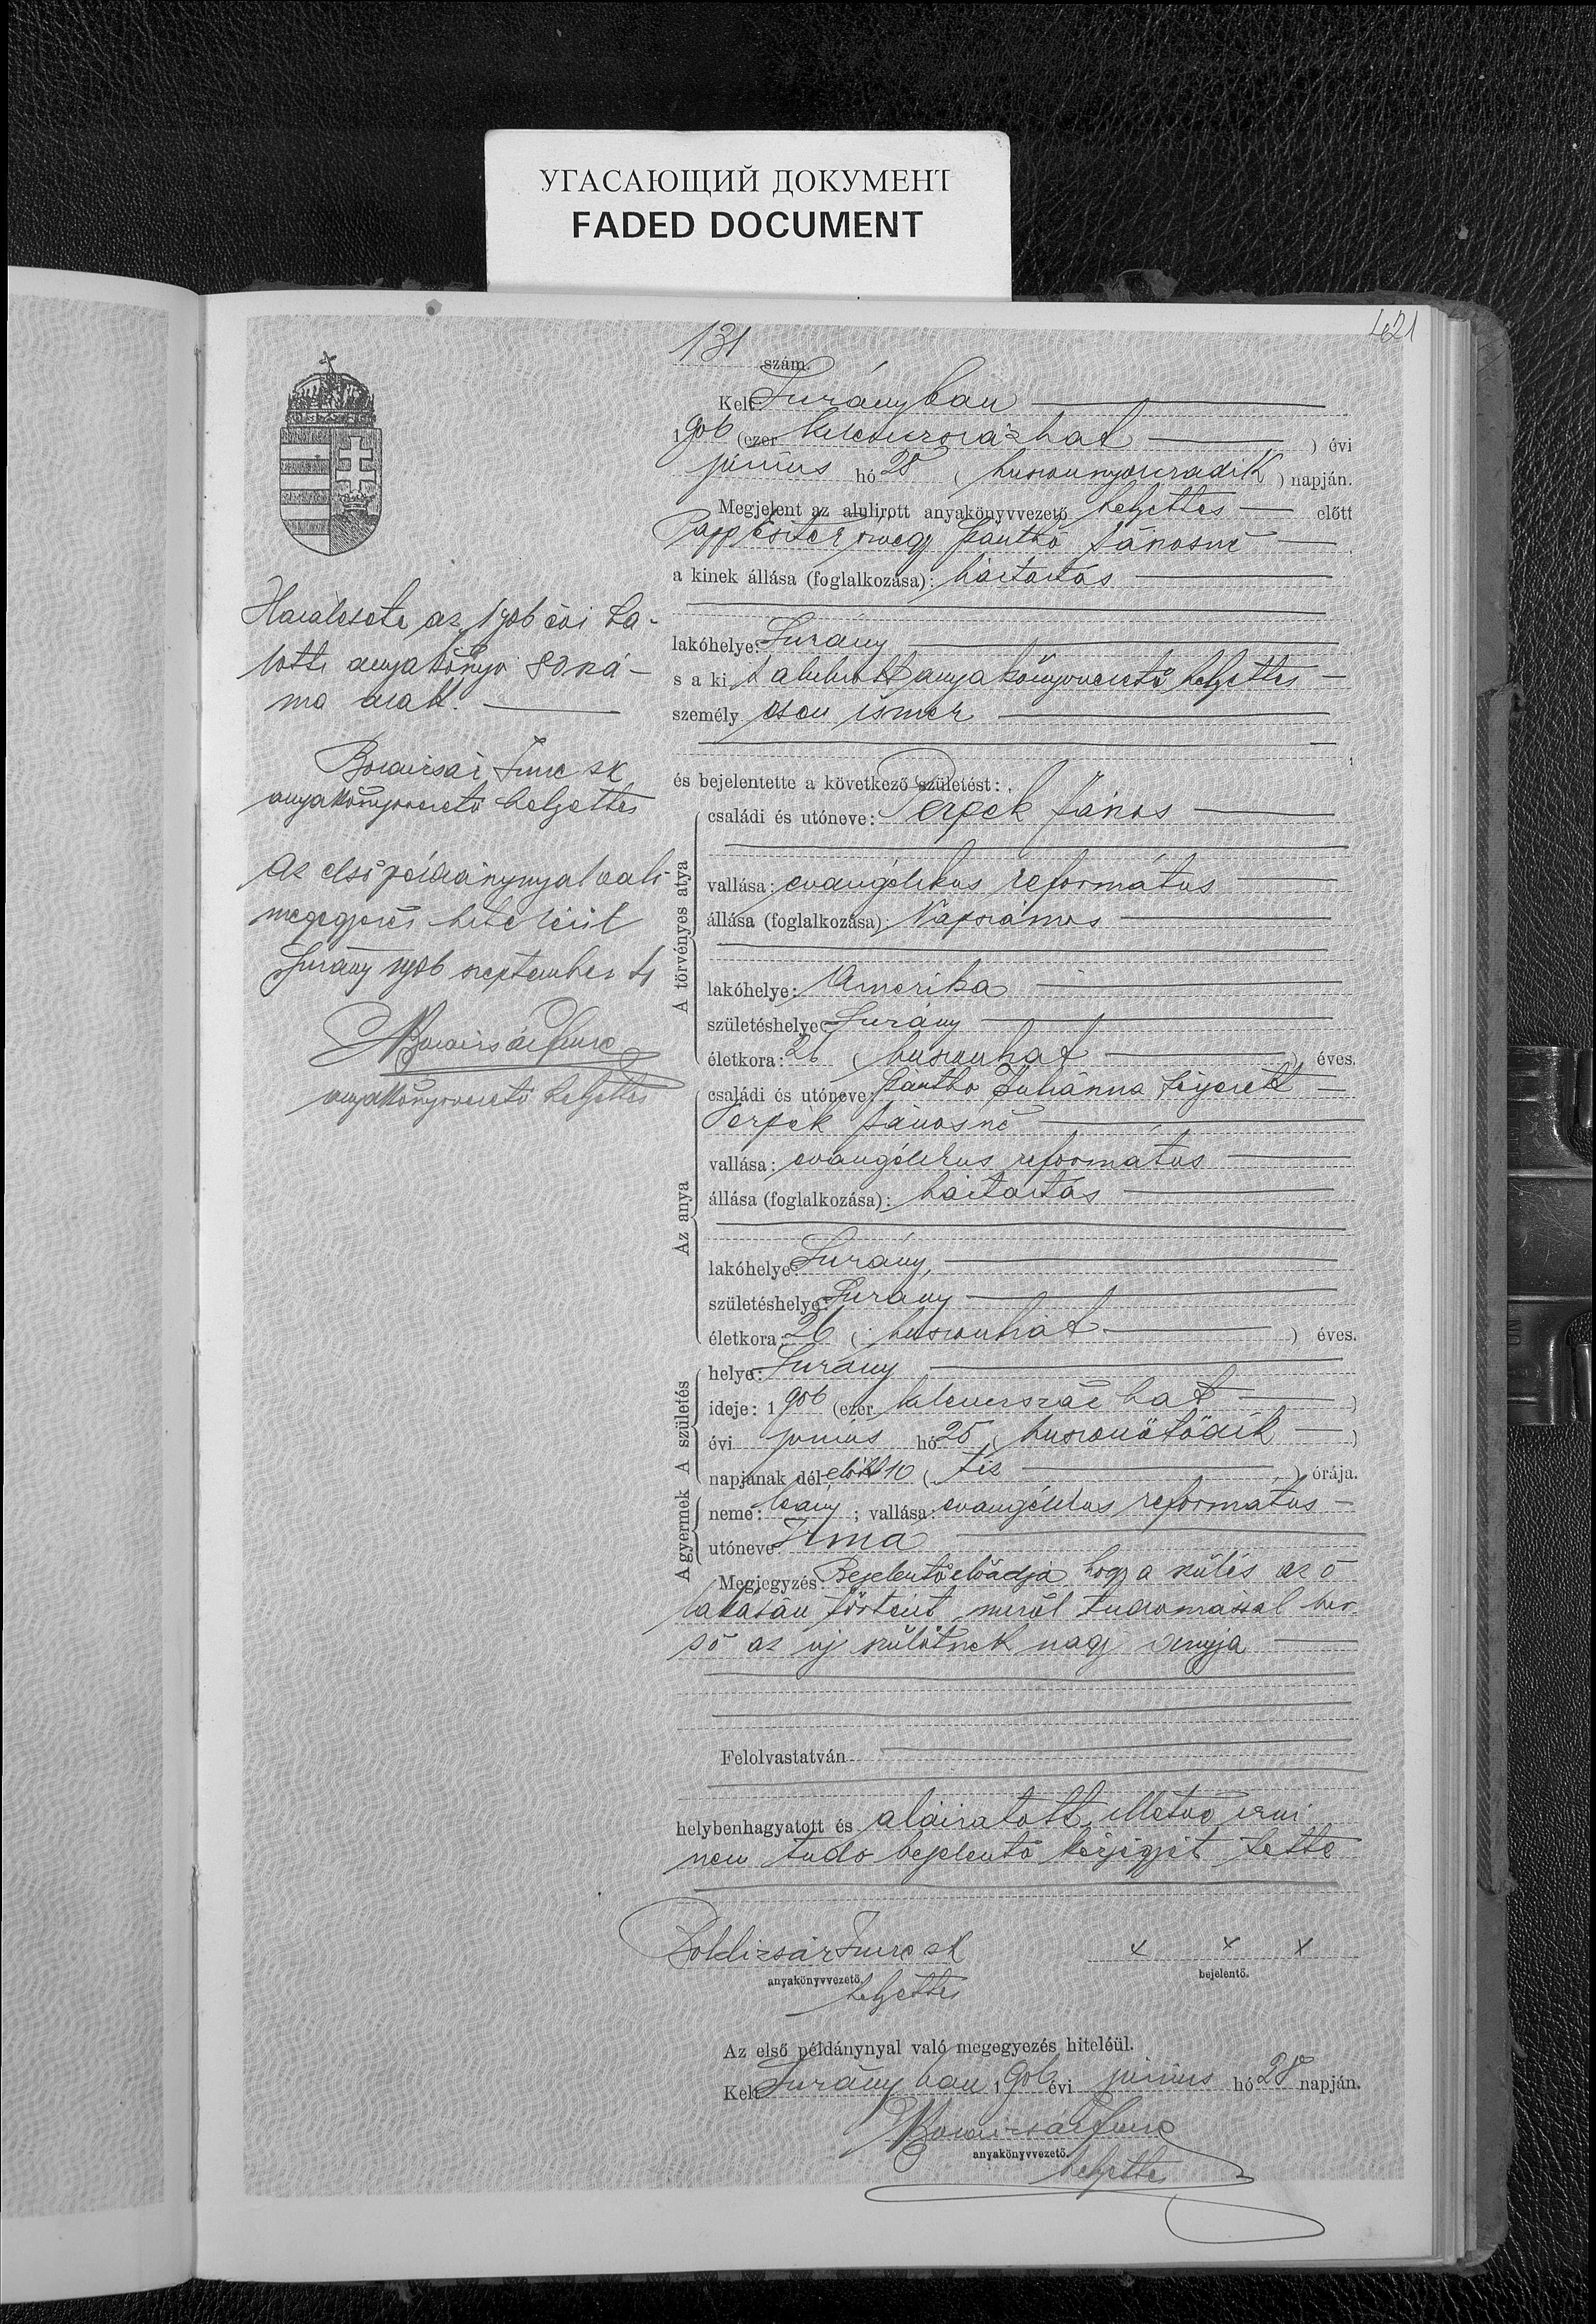 УГАСАЮЩИЙ ДОКУМЕНТ
FADED DOCUMENT
421
131 szám.
Kelt Surányban
1906 (ezer kilencszázhat) évi
június hó 28 (huszonnyolczadik) napján.
Megjelent az alulirott anyakönyvvezető helyettes előtt
Papp Eszter özvegy Panthó Jánosné
a kinek állása (foglalkozása): háztartás
lakóhelye: Surány
s a kit alulirott anyakönyvvezető helyettes
személyesen ismer
és bejelentette a következő születést:
A törvényes atya
családi és utóneve: Perpék János
vallása: evangélikus református
állása (foglalkozása): Napszámos
lakóhelye: Amerika
születéshelye: Surány
életkora: 26 (huszonhat) éves.
Az anya
családi és utóneve: Panthó Juliánna férjezett
Perpék Jánosné
vallása: evangélikus református
állása (foglalkozása): háztartás
lakóhelye: Surány
születéshelye: Surány
életkora: 26 (huszonhat) éves.
A születés
helye: Surány
ideje: 1906 (ezer kilencszázhat)
évi június hó 25 (huszonötödik)
napjának délelőtt 10 (tiz) órája.
A gyermek
neme: leány; vallása: evangélikus református
utóneve: Irma
Megjegyzés: Bejelentő előadja hogy a szülés az ő
lakásán történt, miről tudomással bir
s ő az uj szülötnek nagy anyja
Felolvastatván
helybenhagyatott és aláiratott, illetve irni
nem tudó bejelentő kézjegyét tette
Boldizsár Imre sk
anyakönyvvezető.
helyettes
x x x
bejelentő.
Az első példánynyal való megegyezés hiteléül.
Kelt Surányban 1906 évi június hó 28 napján.
Boldizsár Imre
anyakönyvvezető.
helyettes
Halálesete az 1906 évi ha-
lotti anyakönyv 80 szá-
ma alatt.
Boldizsár Imre sk
anyakönyvvezető helyettes
Az első példánynyal való
megegyezés hiteléül
Surány 1906 szeptember
Boldizsár Imre
anyakönyvvezető helyettes